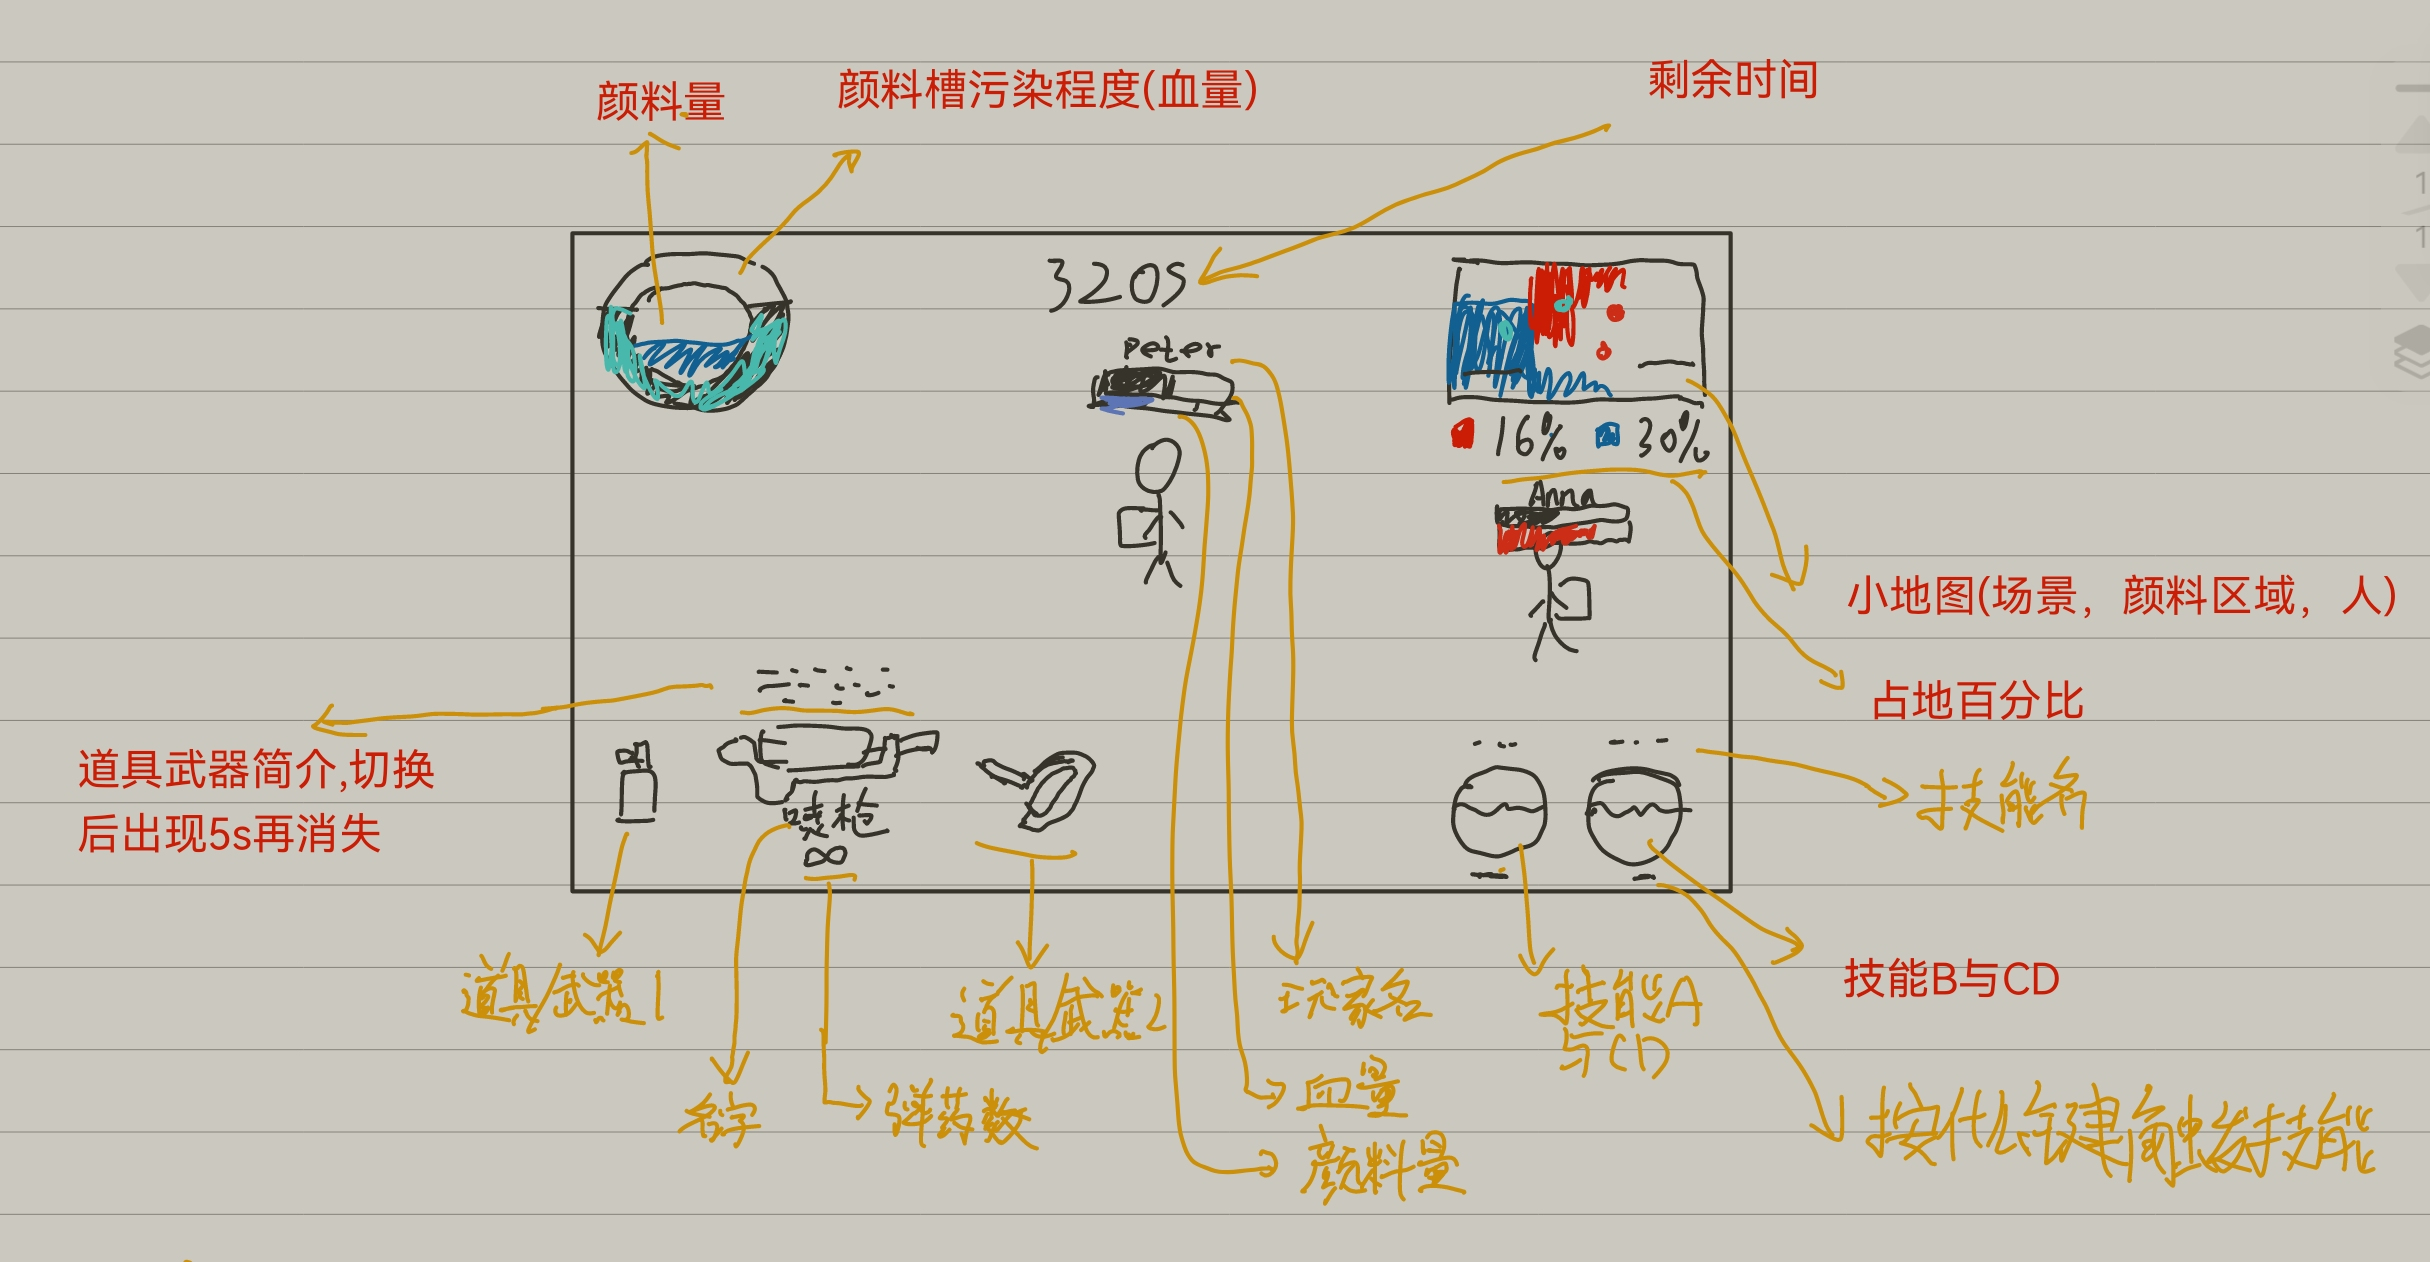 颜料量
颜料槽污染程度(血量)
剩余时间
320s
Peter
16% 30%
Anna
小地图(场景，颜料区域，人)
占地百分比
道具武器简介,切换
后出现5s再消失
喷枪
∞
技能名
道具/武器1
道具/武器2
玩家名
技能A
与CD
技能B与CD
名字
弹药数
血量
颜料量
按什么键触发技能
1
1